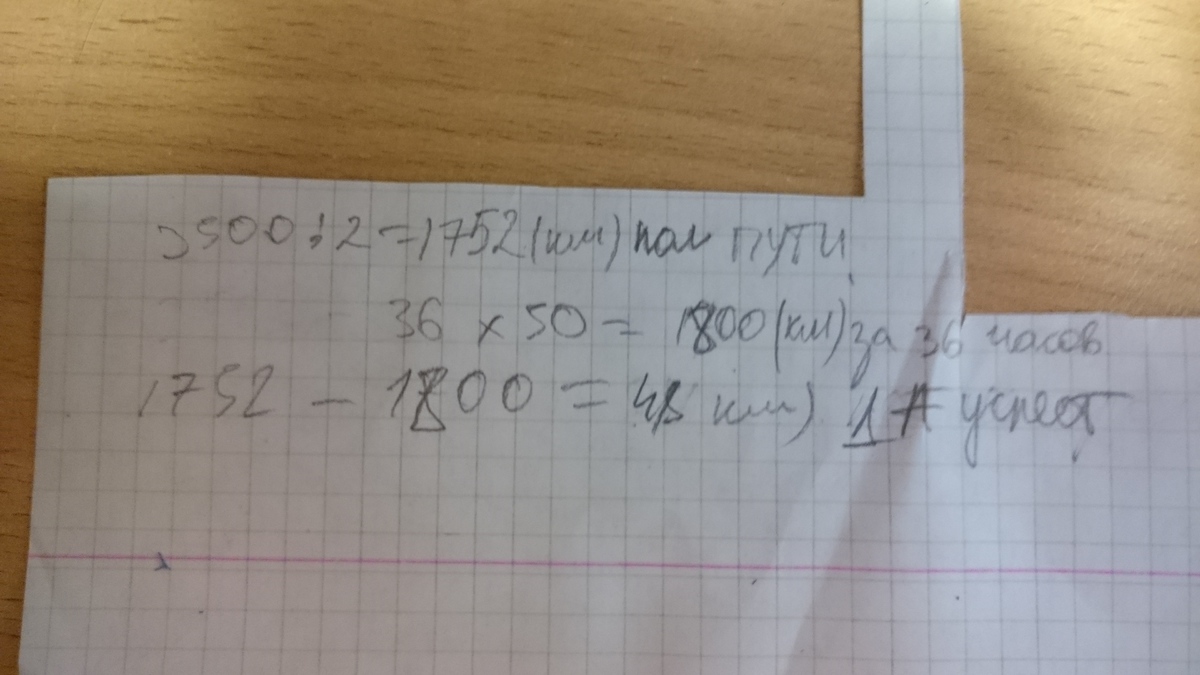 3500:2=1752(км) пол пути
36 x 50 = 1800(км) за 36 часов
1752 - 1800 = 48 км) 1А успеют